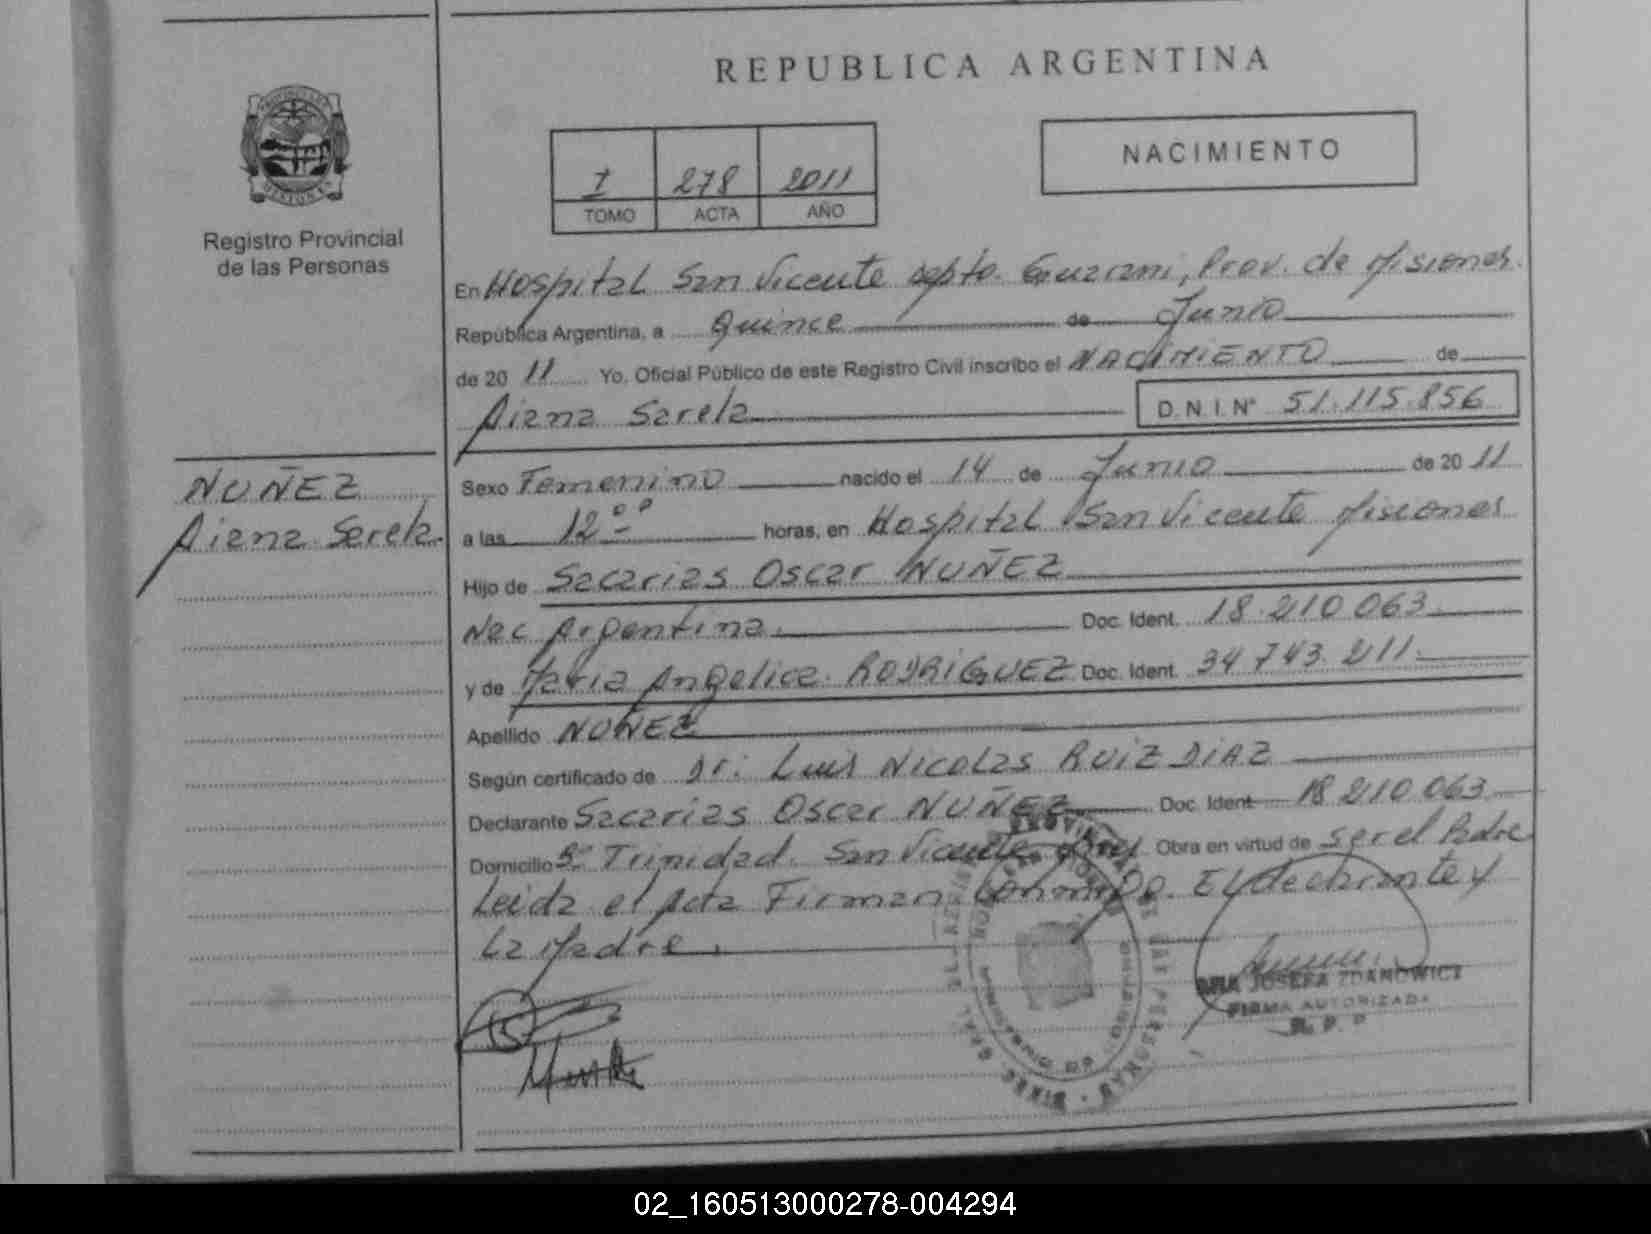 REPUBLICA ARGENTINA
NACIMIENTO
I 278 2011
TOMO ACTA AÑO
Registro Provincial
de las Personas
En Hospital San Vicente Dpto. Guarani, Prov. de Misiones.
República Argentina, a Quince de Junio
de 20 11 Yo, Oficial Público de este Registro Civil inscribo el NACIMIENTO de
Aiena Sarela D.N.I. N° 51.115.856
NUÑEZ
Aiena Sarela
Sexo Femenino nacido el 14 de Junio de 20 11
a las 12 horas, en Hospital San Vicente Misiones
Hijo de Sacarias Oscar NUÑEZ
Nac Argentina. Doc. Ident. 18.210.063
y de Maria Angelica RODRIGUEZ Doc. Ident. 34.743.211.
Apellido NUÑEZ
Según certificado de Dr. Luis Nicolas RUIZ DIAZ
Declarante Sacarias Oscar NUÑEZ Doc. Ident 18.210.063
Domicilio Bº Trinidad. San Vicente Obra en virtud de ser el Padre
Leida el Acta Firman Conmigo. El declarante y
La Madre.
JOSEFA ZDANOWICZ
FIRMA AUTORIZADA
R. P. P
02_160513000278-004294